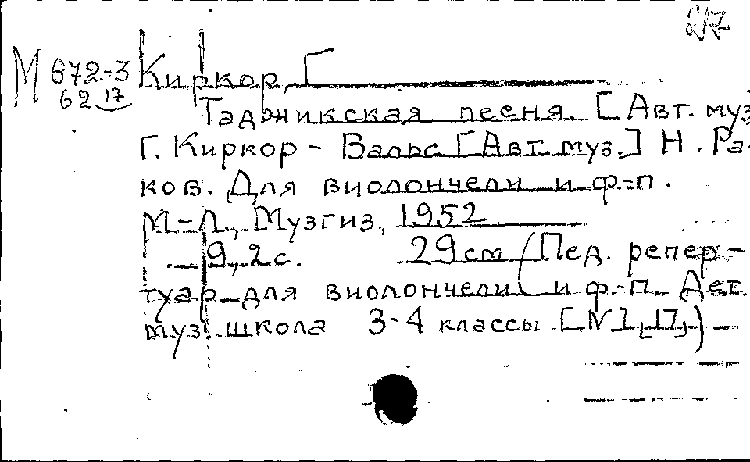 М 672-3 Киркор, Г
62 17
Таджикская песня. [Авт. муз
Г. Киркор - Вальс [Авт. муз.] Н. Ра-
ков. Для виолончели и ф-п.
М-Л., Музгиз, 1952
9, 2 с. 29 см (Пед. репер-
туар для виолончели и ф-п. Дет.
муз. школа 3-4 классы. [N 1, 17,)